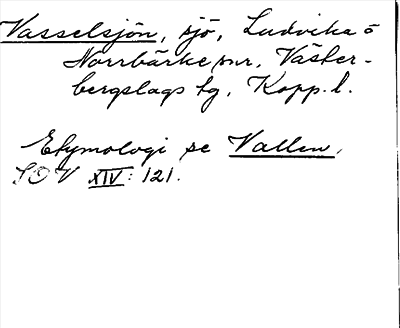 Vasselsjön, sjö, Ludvika o
Norrbärke snr, Väster-
bergslags tg, Kopp. l.
Etymologi se Vallen,
SOV XIV: 121.